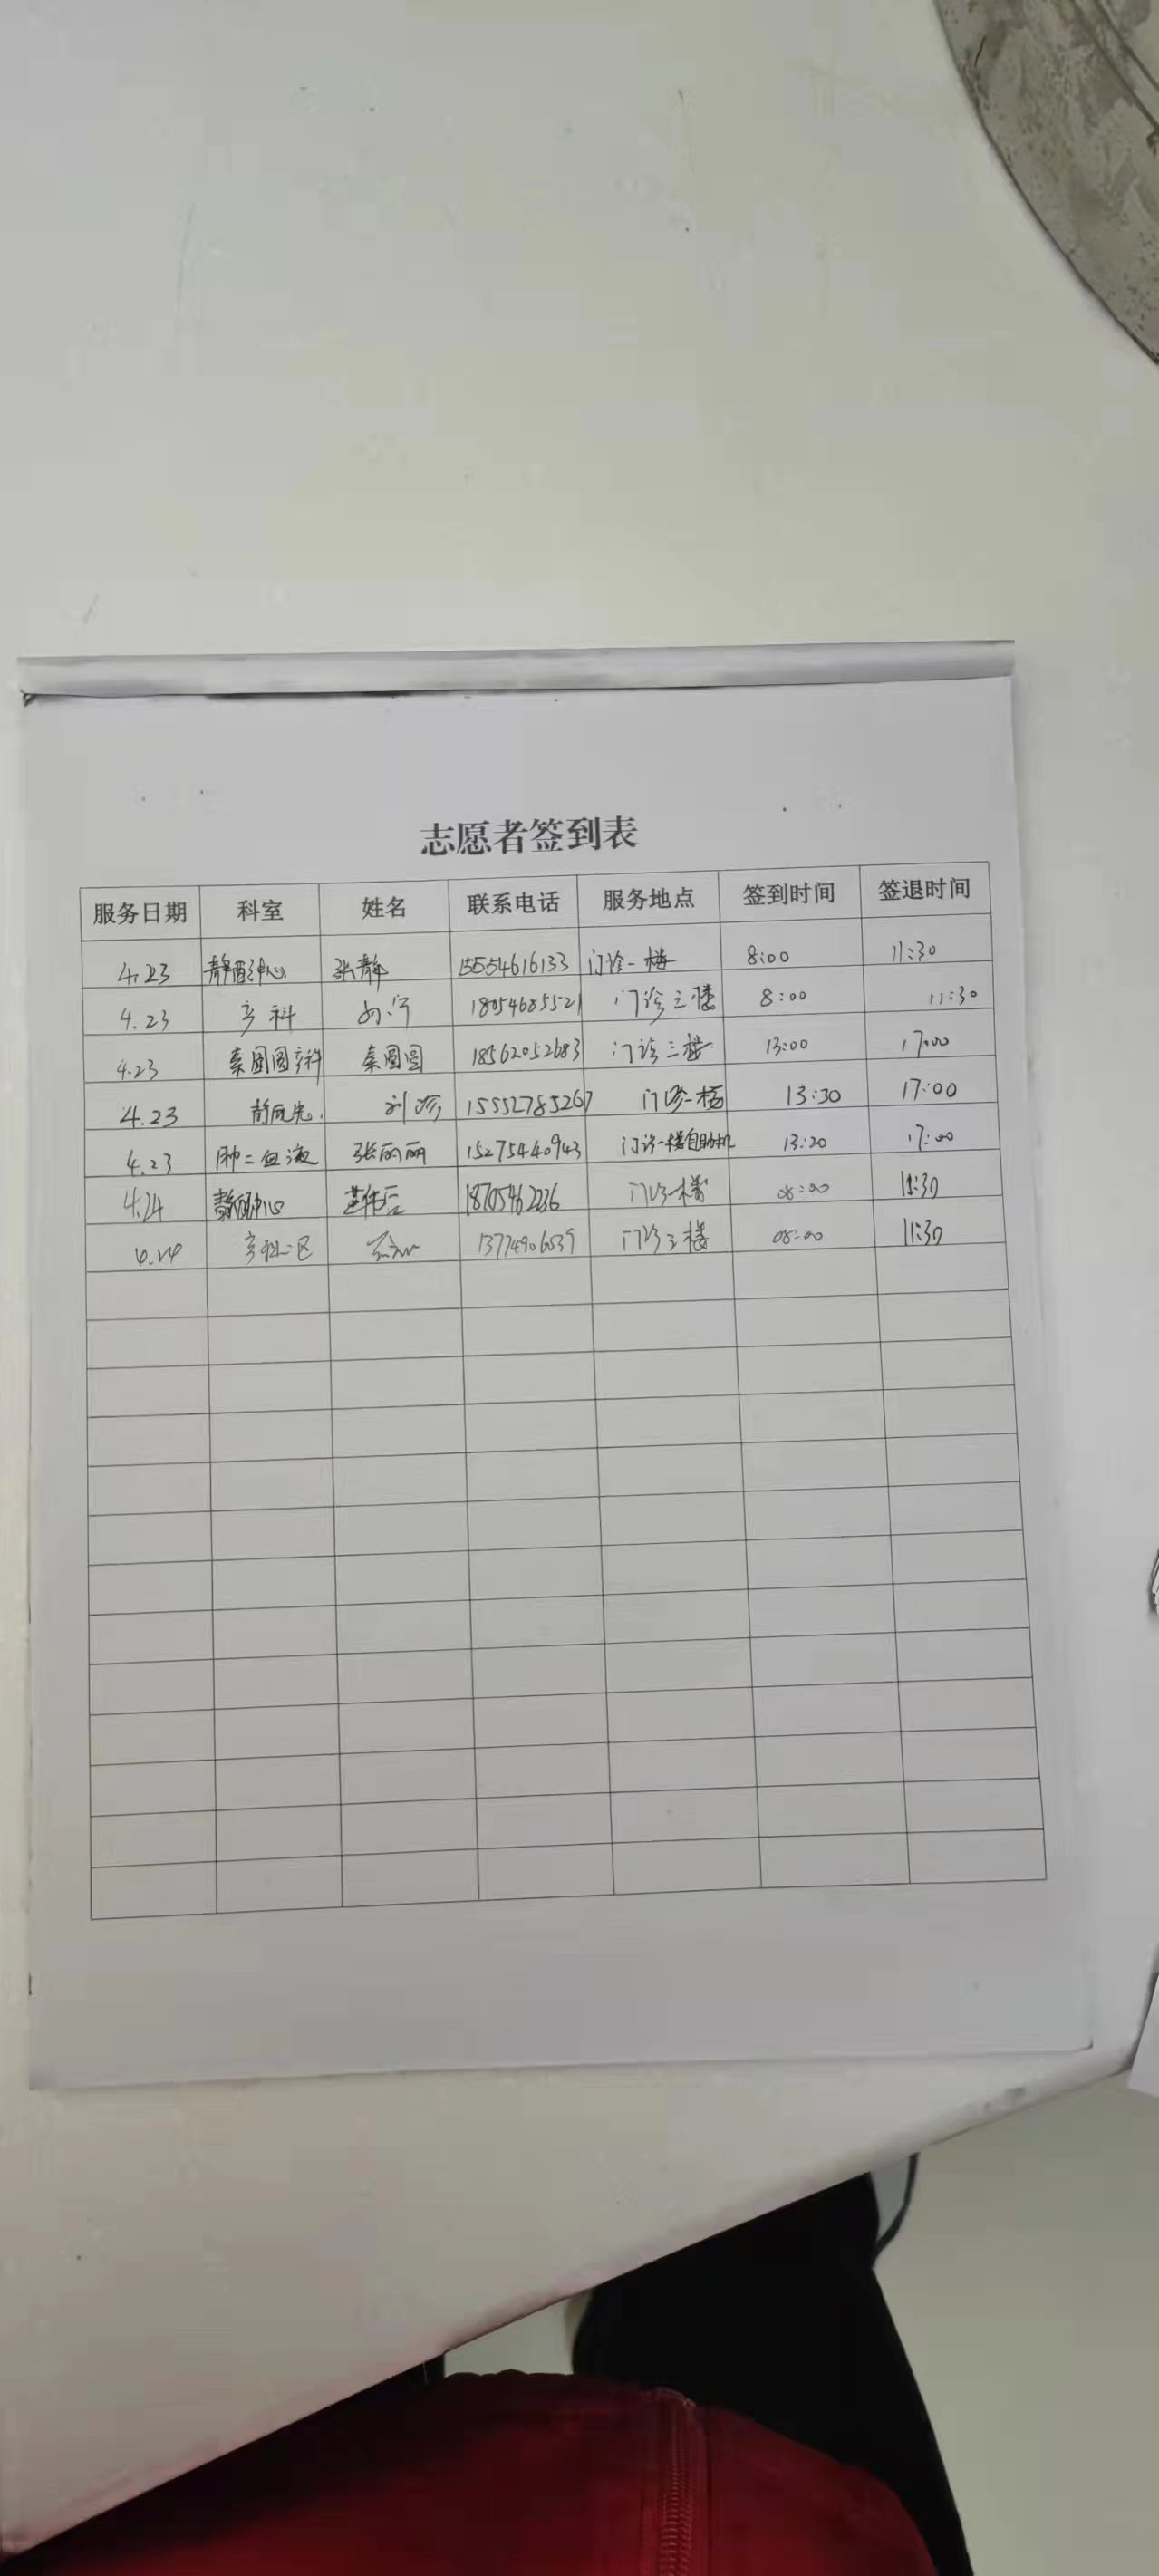 志愿者签到表
服务日期 科室 姓名 联系电话 服务地点 签到时间 签退时间
4.23 静配中心 张静 15554616133 门诊一楼 8:00 11:30
4.23 产科 18054685521 门诊三楼 8:00 11:30
4.23 秦圆圆产科 秦圆圆 18562052683 门诊三楼 13:00 17:00
4.23 15552785267 门诊一楼 13:30 17:00
4.23 肿二血液 张丽丽 15275440943 门诊一楼自助机 13:20 17:00
4.24 静配中心 18705462236 门诊一楼 08:00 11:30
4.24 产科二区 13774906539 门诊三楼 08:00 11:30